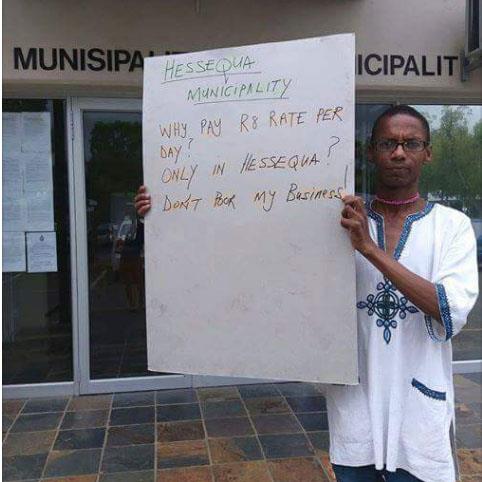 MUNISIPALIT ICIPALIT
HESSEQUA
MUNICIPALITY
WHY PAY R8 RATE PER
DAY?
ONLY IN HESSEQUA?
DON'T POOR MY Business!